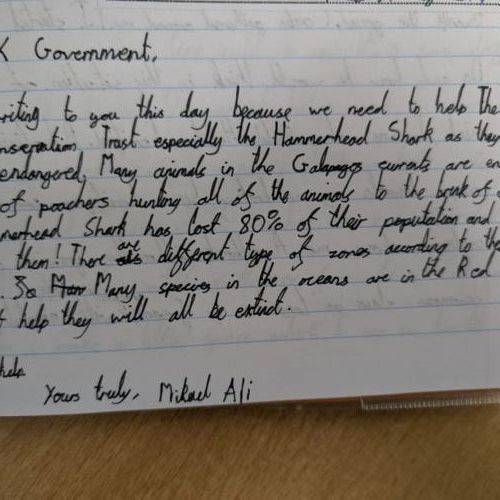 K Government,
riting to you this day because we need to help The
nservation Trust especially the Hammerhead Shark as they
endangered. Many animals in the Galapagos currents are en
of poachers hunting all of the animals to the brink of
merhead Shark has lost 80% of their population and
them! There are different type of zones according to th
. So Many species in the oceans are in the Red
t help they will all be extinct.
help
Yours truly, Mikael Ali